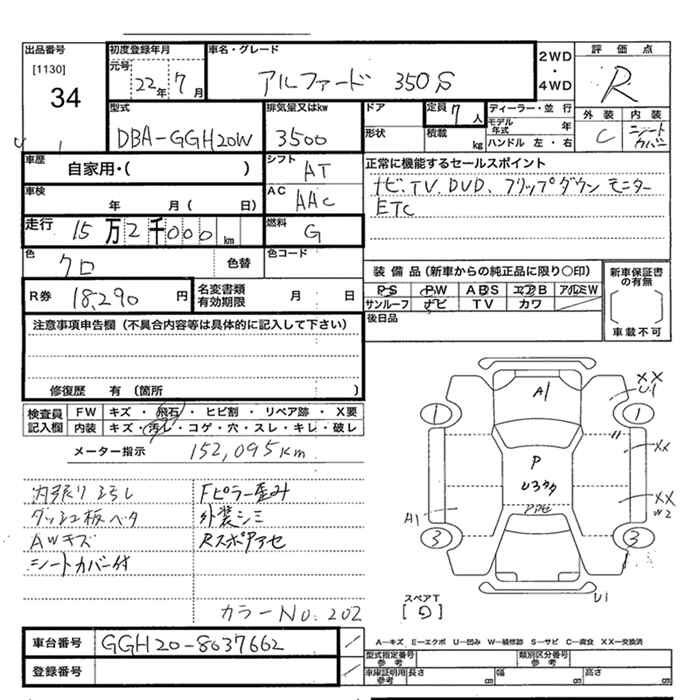 出品番号
[1130]
34
初度登録年月
元号
22年7月
車名・グレード
アルファード 350S
2WD
・
4WD
評価点
R
型式
DBA-GGH20W
排気量又はkw
3500
ドア
形状
定員 7人
積載 kg
ディーラー・並行
モデル年式 年
ハンドル 左・右
外装 内装
C シートカバー
車歴
自家用・( )
シフト
AT
正常に機能するセールスポイント
ナビ、TV、DVD、フリップダウンモニター
ETC
車検
年 月( 日)
AC
AAC
走行 15万2千000km
燃料
G
色
クロ 色替
色コード
R券 18,290円
名変書類有効期限 月 日
装備品(新車からの純正品に限り○印)
PS PW ABS エアB アルミW
サンルーフ ナビ TV カワ
新車保証書の有無
[ ]
車載不可
後日品
注意事項申告欄(不具合内容等は具体的に記入して下さい)
修復歴 有(箇所 )
検査員記入欄
FW キズ・飛石・ヒビ割・リペア跡・X要
内装 キズ・汚レ・コゲ・穴・スレ・キレ・破レ
メーター指示 152,095km
内張り汚れ
ダッシュ板ベタ
AWキズ
シートカバー付
Fピラー歪み
外装シミ
カラーNo.202
A1
XX
U1
1
1
P
XX
XX
W2
A1
3
3
U1
スペアT
A—キズ E—エクボ U—凹み W—補修跡 S—サビ C—腐食 XX—交換済
車台番号 GGH20-8037662
登録番号
型式指定番号参考
類別区分番号参考
車庫証明用参考 長さ cm 幅 cm 高さ cm